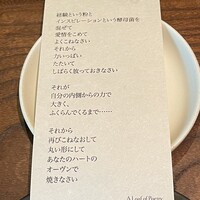 経験という粉と
インスピレーションという酵母菌を
混ぜて
愛情をこめて
よくこねなさい
それから
力いっぱい
たたいて
しばらく放っておきなさい
それが
自分の内側からの力で
大きく、
ふくらんでくるまで……
それから
再びこねなおして
丸い形にして
あなたのハートの
オーヴンで
焼きなさい
A Loaf of Poetry